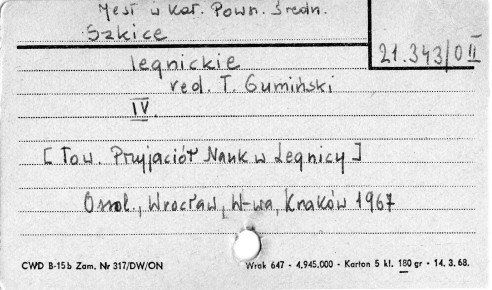 Jest w Kat. Pown. Średn.
Szkice
21.343/0 II
legnickie
red. T. Gumiński
IV.
[Tow. Przyjaciół Nauk w Legnicy]
Ossol., Wrocław, W-wa, Kraków 1967
CWD B-15b Zam. Nr 317/DW/ON
Wrok 647 - 4.945.000 - Karton 5 kl. 180 gr - 14. 3. 68.